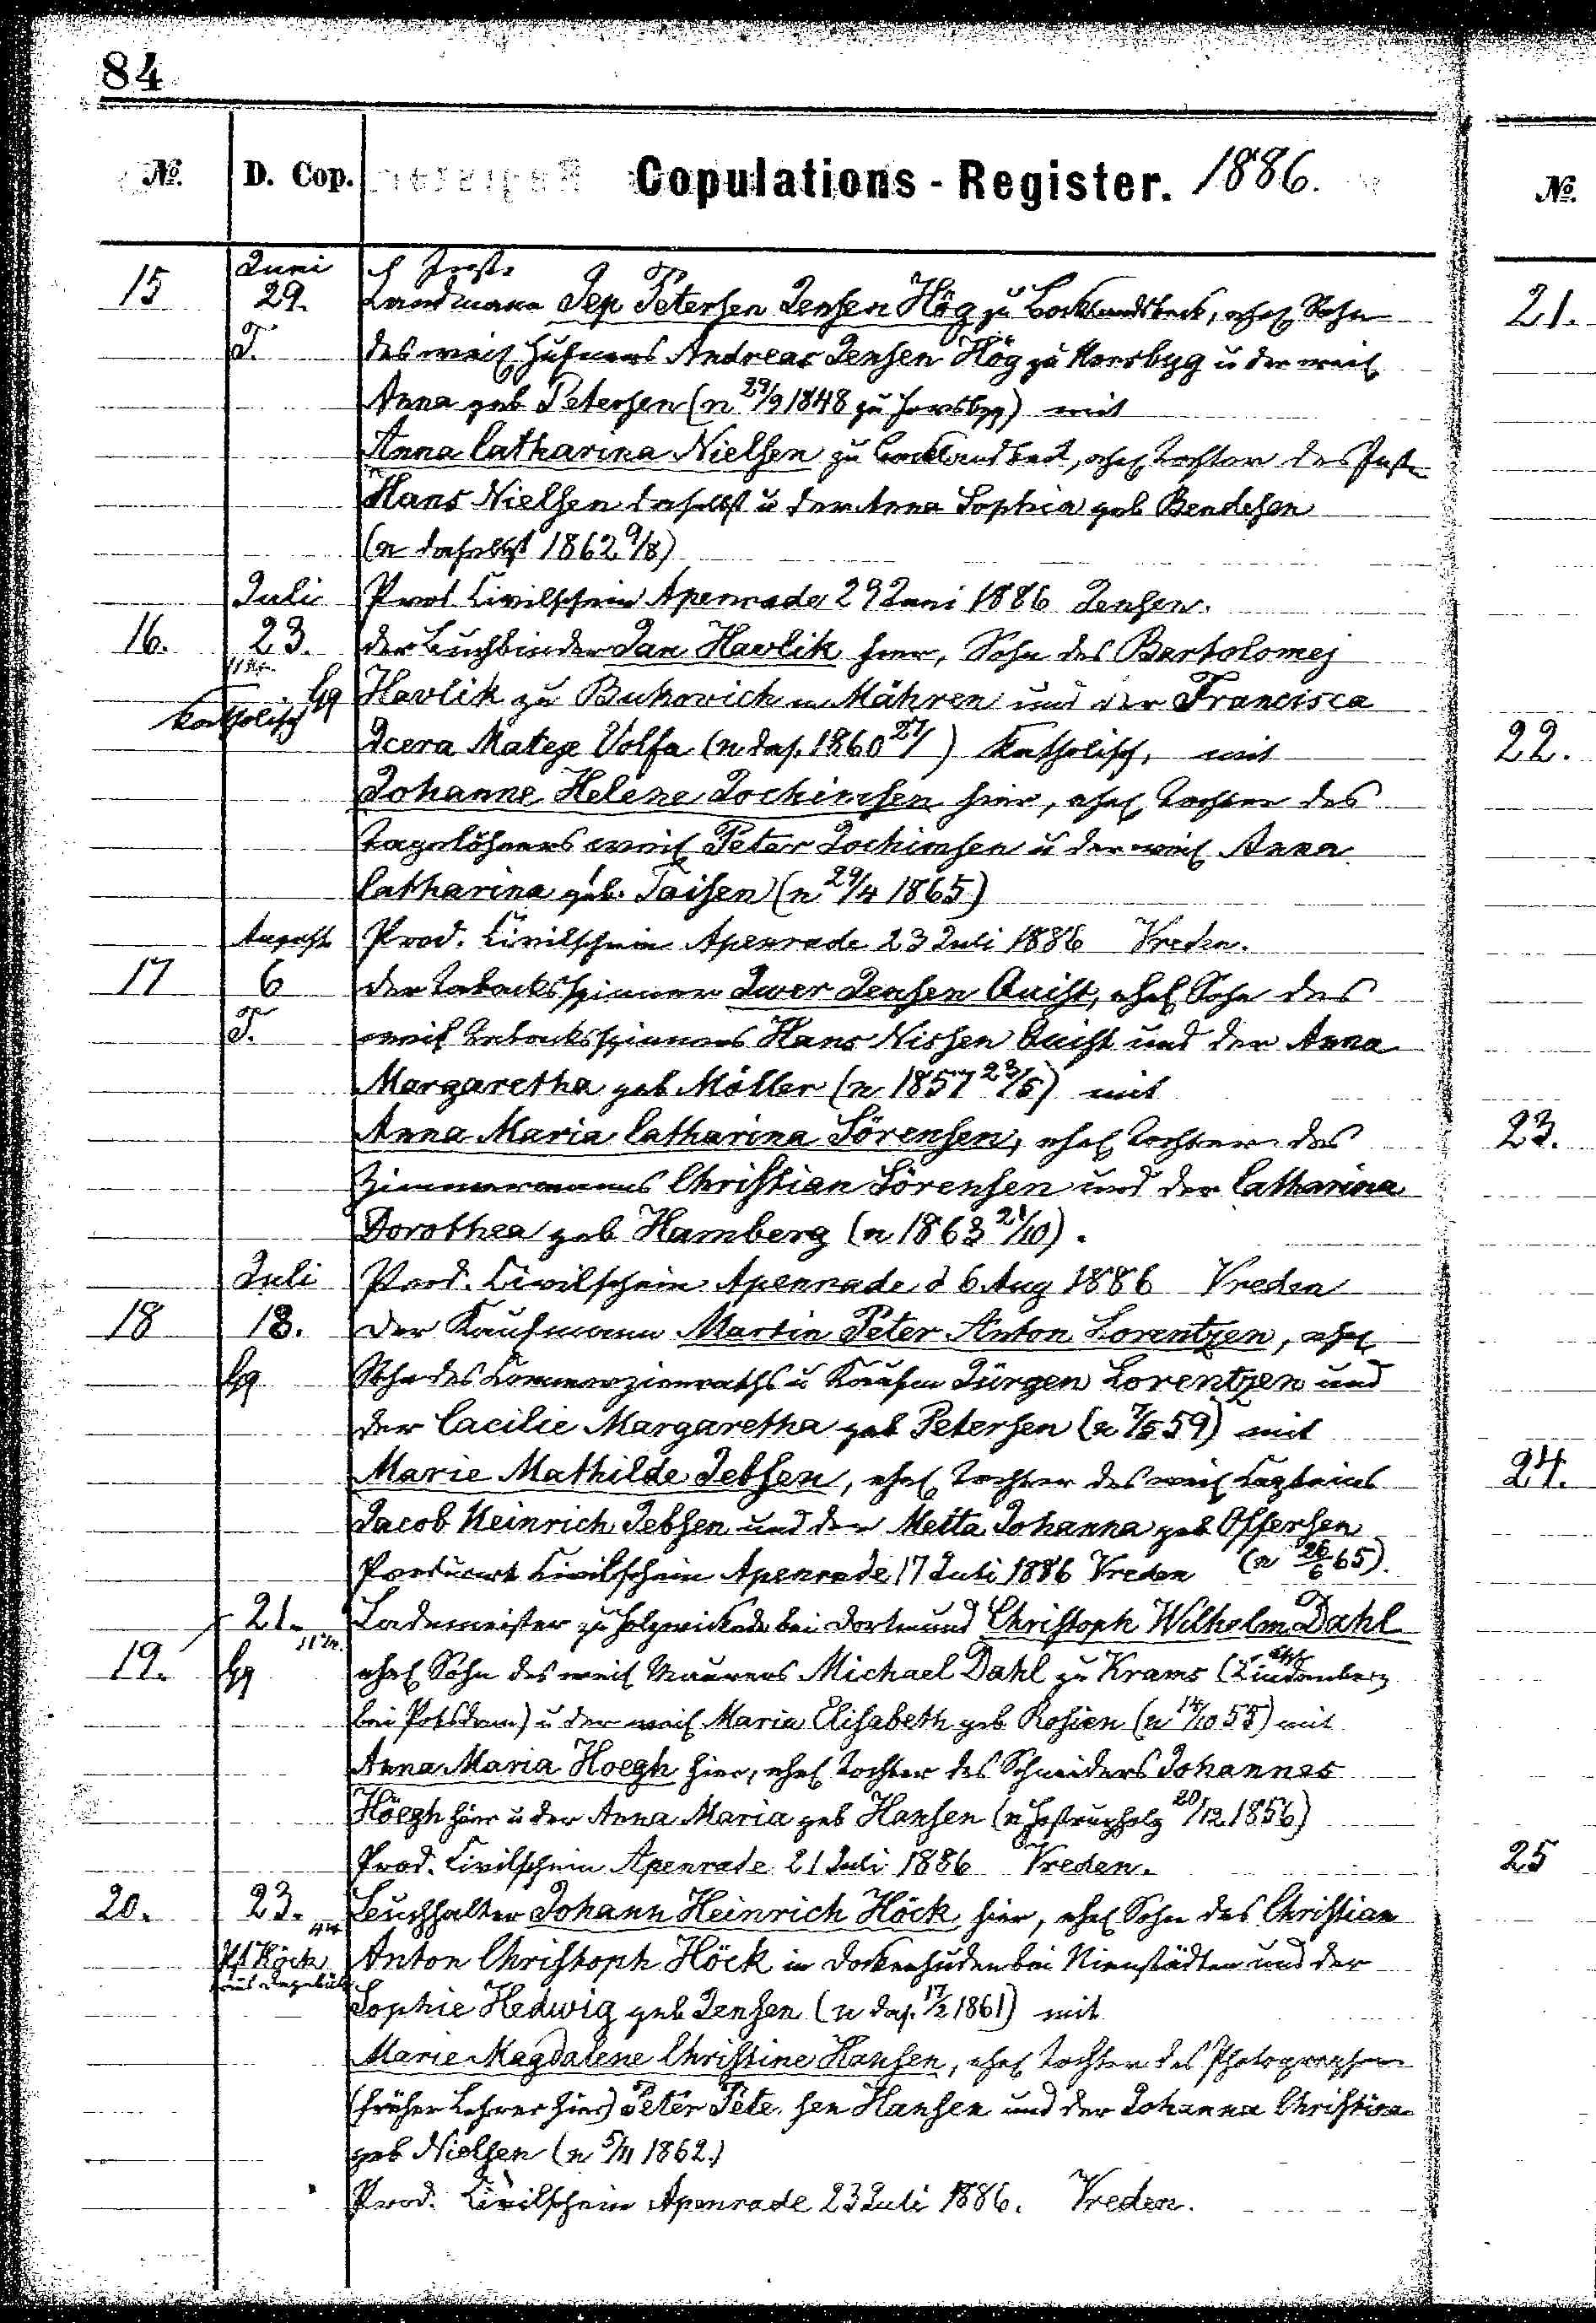 84
№. D. Cop. Copulations - Register. 1886.
№.
Juni
15 29. Landmann Jep Petersen Jensen Hög zu Locklandsbek, ehel Sohn
T. des weil Hufners Andreas Jensen Hög zu u der weil
Anna geb Petersen (n 29/9 1848 zu ) mit
Anna Catharina Nielsen zu , ehel Tochter des Inste
Hans Nielsen daselbst u der Anna Sophia geb Bendesen
(n daselbst 1862 9/8)
Juli Prod Civilschein Apenrade 29 Juni 1886 Jensen.
16. 23. der Buchbinder Jan Havlik hier, Sohn des Bartolomej
Hg Havlik zu Bukovich in Mähren und der Francisca
Katholisch
Dcera Mateje Volfa (n das. 1860 27/ ) Katholisch, mit
Johanne Helene Jochimsen hier, ehel Tochter des
Tagelöhners weil Peter Jochimsen u der weil Anna
Catharina geb. Taisen (n 29/4 1865)
August Prod. Civilschein Apenrade 23 Juli 1886 Vreden.
17 6 der Tabacksspinner Iwer Jensen Quist, ehel Sohn des
T. weil Tabacksspinners Hans Nissen Quist und der Anna
Margaretha geb Möller (n 1857 23/5) mit
Anna Maria Catharina Sörensen, ehel Tochter des
Zimmermanns Christian Sörensen und der Catharina
Dorothea geb Hamberg (n 1863 21/10).
Juli Prod. Civilschein Apenrade d 6 Aug 1886 Vreden
18 18. der Kaufmann Martin Peter Anton Lorentzen, ehel
Hg Sohn des Commerzienraths u Kaufm Jürgen Lorentzen und
der Cacilie Margaretha geb Petersen (n 7/5 59) mit
Marie Mathilde Jebsen, ehel Tochter des weil Capteins
Jacob Heinrich Jebsen und der Metta Johanna geb Offersen
Producirt Civilschein Apenrade 17 Juli 1886 Vreden (n 26/6 65).
21. Lademeister zu Holzwickede bei Dortmund Christoph Wilhelm Dahl
19. Hg ehel Sohn des weil Maurers Michael Dahl zu Krams (Lindenberg
bei Potsdam) u der weil Maria Elisabeth geb Rosien (n 14/10 55) mit
Anna Maria Hoegh hier, ehel Tochter des Schneiders Johannes
Höegh hier u der Anna Maria geb Hansen (n 20/12 1856)
Prod. Civilschein Apenrade 21 Juli 1886 Vreden.
20. 23. Buchhalter Johann Heinrich Höck hier, ehel Sohn des Christian
Anton Christoph Höck in Dockenhuden bei Nienstädten und der
Sophie Hedwig geb Jensen (n das. 17/2 1861) mit
Marie Magdalene Christine Hansen, ehel Tochter des Photographen
(früher Lehrer hier) Peter Pete sen Hansen und der Johanna Christina
geb Nielsen (n 5/11 1862.)
Prod. Civilschein Apenrade 23 Juli 1886. Vreden.
21.
22.
23.
24.
25